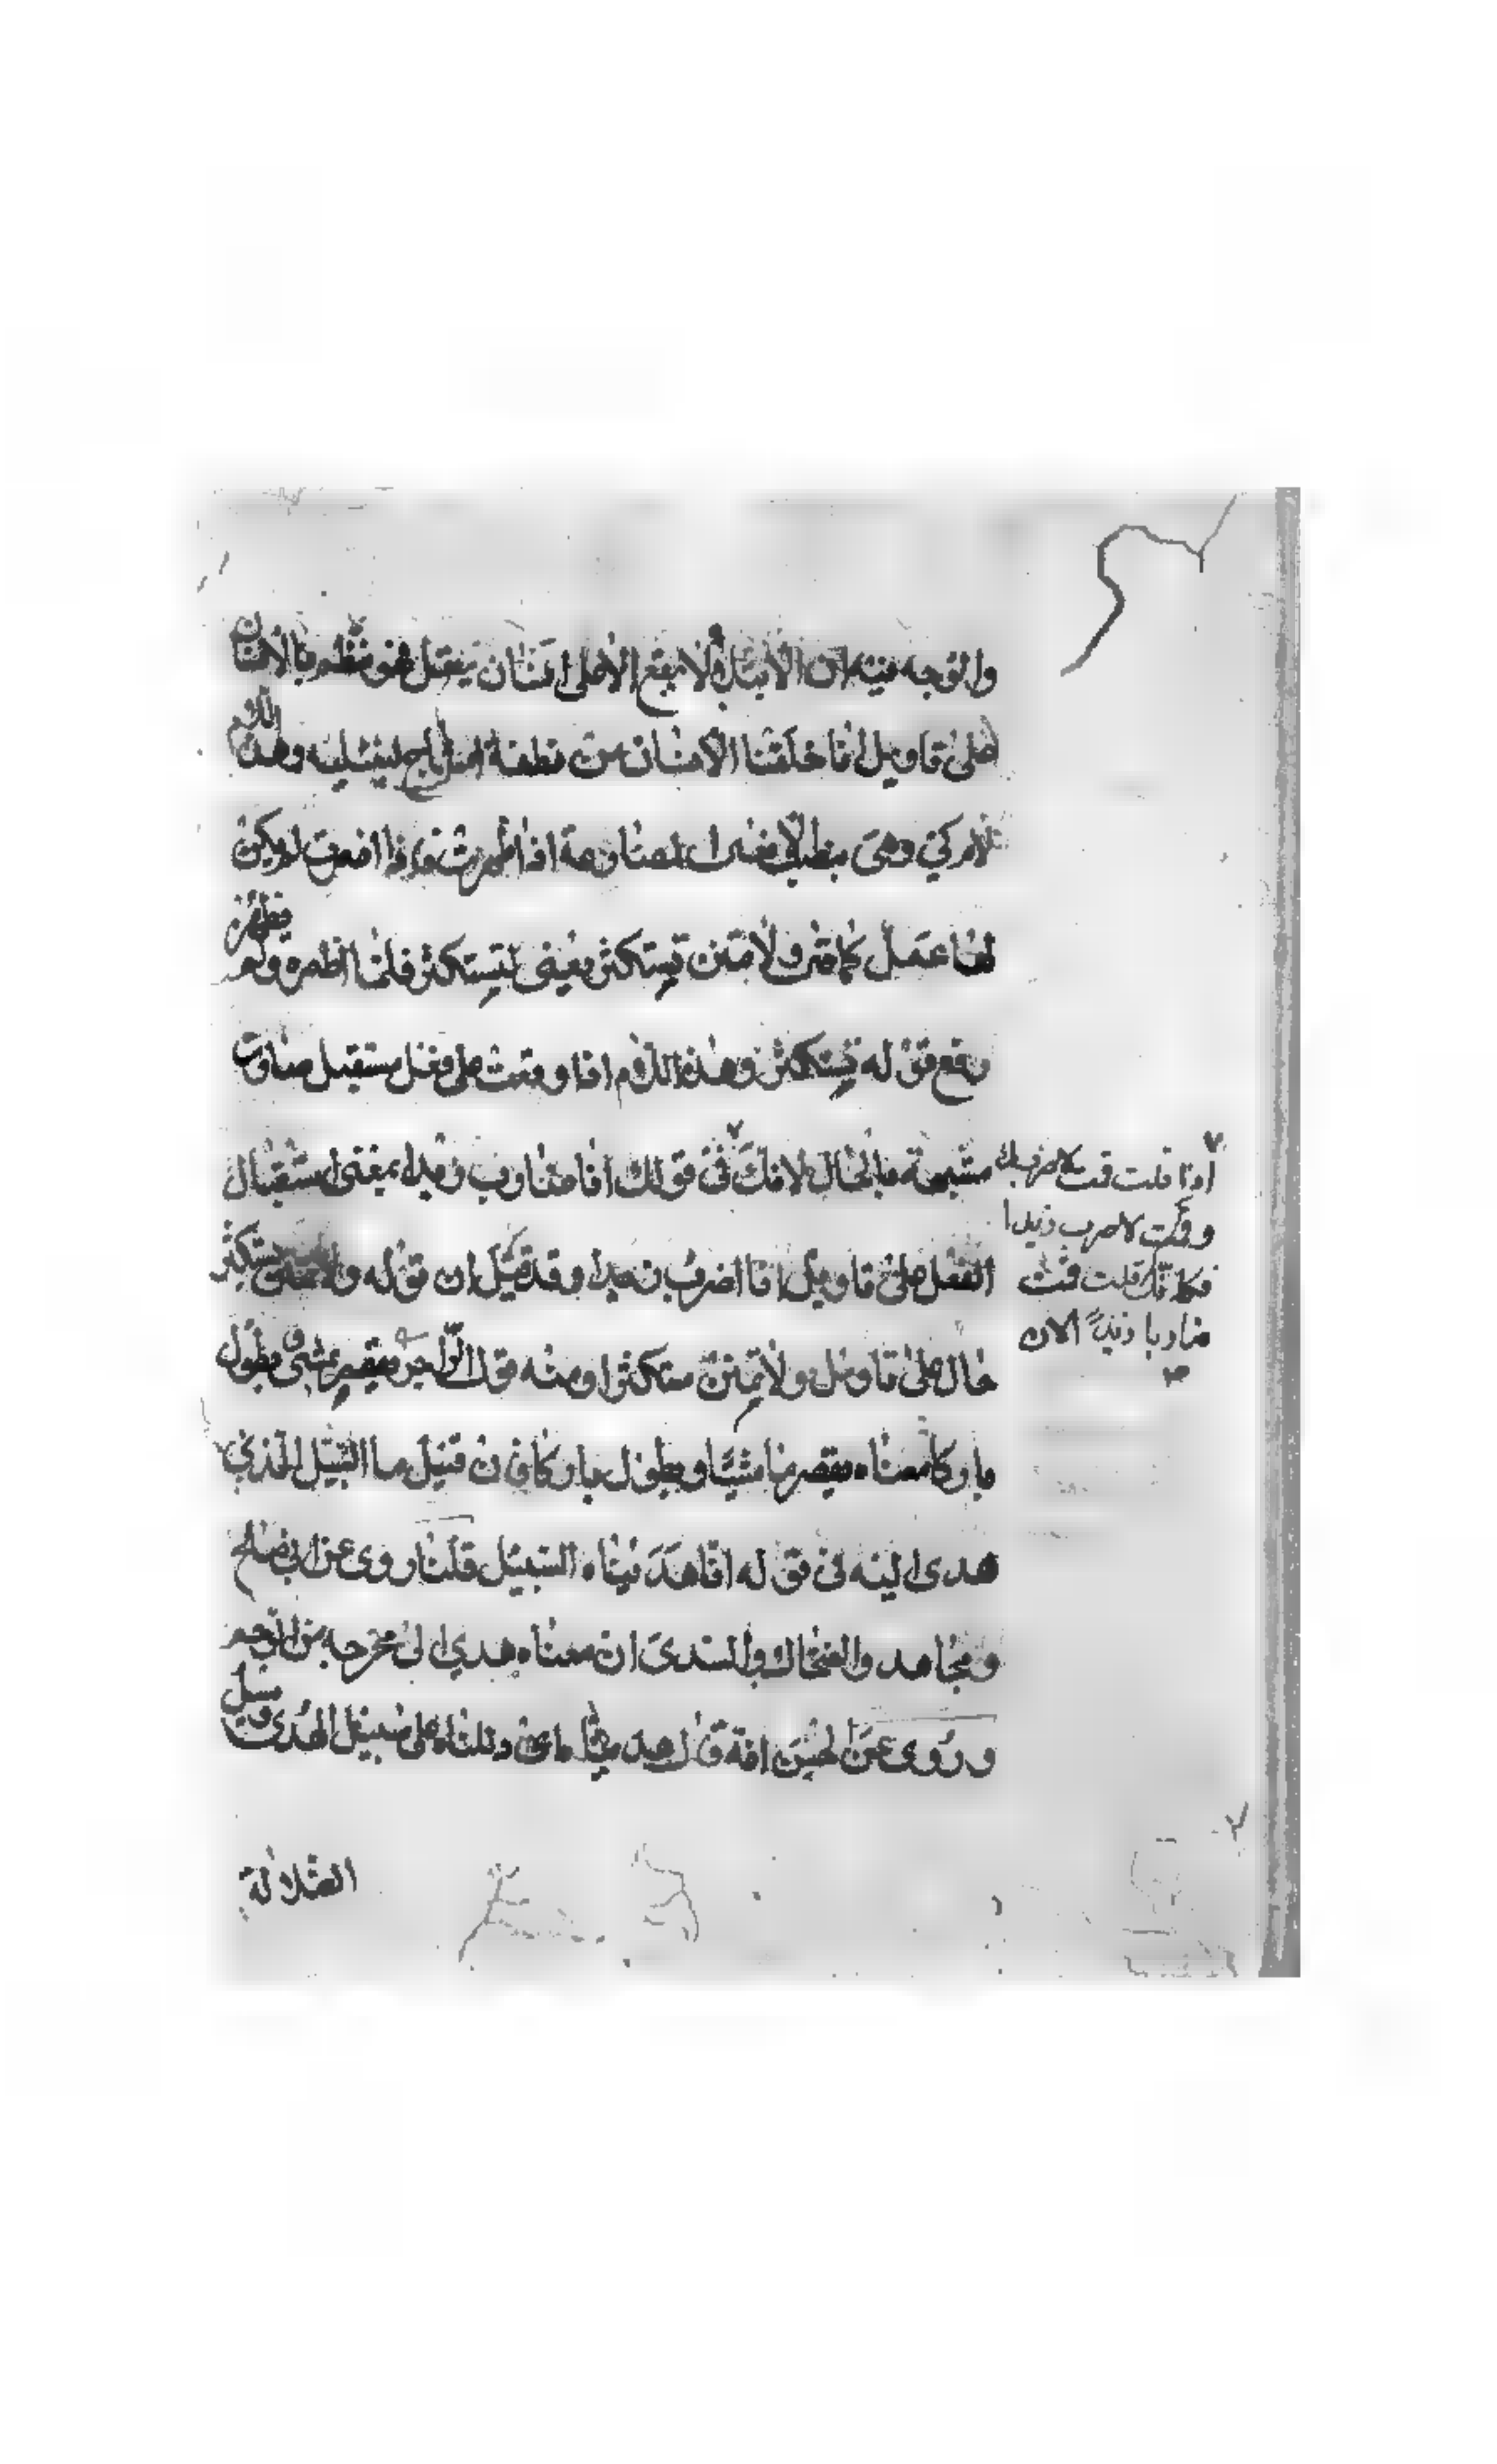 والوجه فيه ان الابتلاء لا يقع الا على انسان يعقل فهو منظوم بالانسان
على تاويل انا خلقنا الانسان من نطفة امشاج لنبتليه وهذه اللام
لام كي وهى تطلب مضارعة اذا ظهرت واذا اضمرت لم يكن
لها عمل كما ترى ولا تمنن تستكثر بمعنى لتستكثر فلما اظمره ولم يظهر
رفع قوله تستكثر وهذه اللام اذا وقعت على فعل مستقبل صارت
مشبهة بالحال لانك فى قولك انا ضارب زيدا بمعنى استقبال
الفعل على تاويل انا اضرب زيدا وقد قيل ان قوله ولا تمنن تستكثر
حال على تاويل ولا تمنن مستكثرا ومنه قول الراجز يقصر يمشى ويطول
باركا معناه يقصر ماشيا ويطول باركا فان قيل ما السبيل الذي
هدى اليه فى قوله انا هديناه السبيل قلنا روى عن ابى صالح
ومجاهد والضحاك والسدى ان معناه هدي الى مخرجه من الرحم
وروى عن الحسن انه قال هديناه اى دللناه على سبيل الهدى وسبيل
الضلالة
اذا قلت قمت لاضربك
وقمت لاضرب زيدا
فكانك قلت قمت
ضاربا زيدا الان
صح